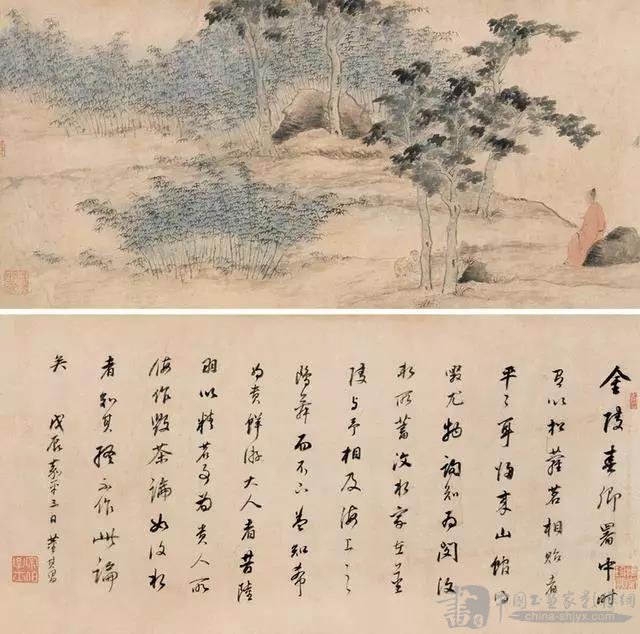 金陵春卿署中時
有以松蘿茗相貽者
平〻耳歸來山館得
啜尤物詢知為閔汶
水所蓄汶水家在金
陵与予相及海上之
鷗舞而不下蓋知希
為貴鮮游大人者昔陸
羽以精茗事為貴人所
侮作毀茶論如汶水
者知其終不作此論
矣 戊辰嘉平三日 董其昌
www.china-shjyx.com